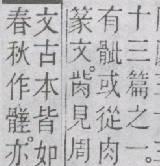 十三篇之一
有骴或從肉
篆文。胔見周
文古本皆如
春秋作髊。亦